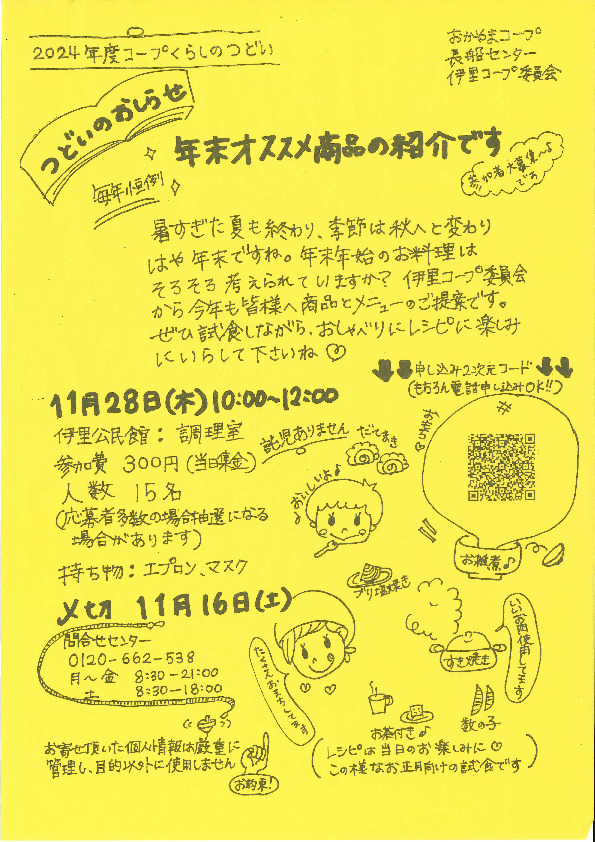 2024年度コープくらしのつどい
おかやまコープ
長船センター
伊里コープ委員会
つどいのおしらせ
年末オススメ商品の紹介です
毎年恒例
参加者大募集〜♪
です
暑すぎた夏も終わり、季節は秋へと変わり
はや年末ですね。年末年始のお料理は
そろそろ考えられていますか? 伊里コープ委員会
から今年も皆様へ商品とメニューのご提案です。
ぜひ試食しながら、おしゃべりにレシピに楽しみ
にいらして下さいね♡
申し込み2次元コード
(もちろん電話申し込みOK!!)
11月28日(木)10:00~12:00
伊里公民館:調理室
託児ありません
だてまき
参加費 300円(当日集金)
おいしいよ♪
人数 15名
(応募者多数の場合抽選になる
場合があります)
お雑煮♪
持ち物:エプロン、マスク
ブリ塩焼き
〆切 11月16日(土)
問合せセンター
0120-662-538
月〜金 8:30-21:00
土 8:30-18:00
たくさんお待ちしてます
すき焼き
いいお肉使用してます
お箱付き♪
数の子
お寄せ頂いた個人情報は厳重に
管理し、目的以外に使用しません
お約束!
(レシピは当日のお楽しみに♡
この様なお正月向けの試食です)